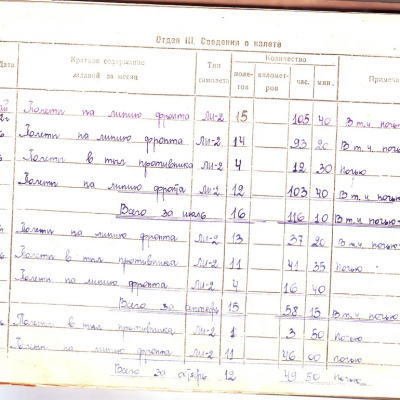 Отдел III. Сведения о налете
Дата Краткое содержание заданий за месяц Тип самолета Количество полетов километров час. мин. Примеча
Полеты на линию фронта Ли-2 15 105 40 В т.ч. ночью
Полеты на линию фронта Ли-2 14 93 20 В т.ч. ночью
Полеты в тыл противника Ли-2 4 12 30 Ночью
Полеты на линию фронта Ли-2 12 103 40 В т.ч. ночью
Всего за июль 16 116 10 В т.ч. ночью
Полеты на линию фронта Ли-2 13 37 20 В т.ч. ночью
Полеты в тыл противника Ли-2 11 41 35 Ночью
Полеты на линию фронта Ли-2 4 16 40
Всего за сентябрь 15 58 15 В т.ч. ночью
Полеты в тыл противника Ли-2 1 3 50 Ночью
Полеты на линию фронта Ли-2 11 46 00 ночью
Всего за октябрь 12 49 50 Ночью